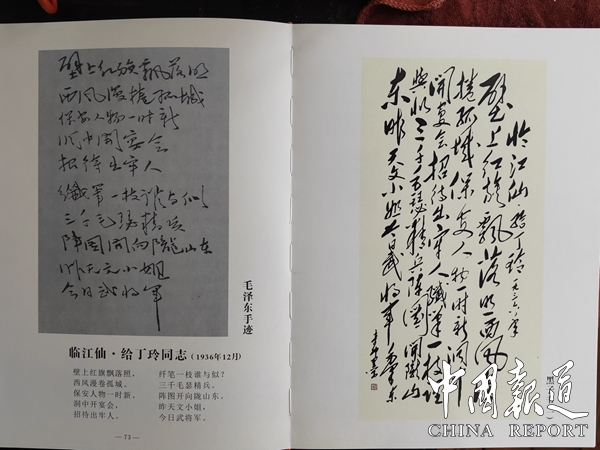 壁上红旗飘落照
西风漫卷孤城
保安人物一时新
洞中开宴会
招待出牢人
纤笔一枝谁与似
三千毛瑟精兵
阵图开向陇山东
昨天文小姐
今日武将军
毛泽东手迹
临江仙·给丁玲同志（1936年12月）
壁上红旗飘落照，
西风漫卷孤城。
保安人物一时新。
洞中开宴会，
招待出牢人。
纤笔一枝谁与似？
三千毛瑟精兵。
阵图开向陇山东。
昨天文小姐，
今日武将军。
— 73 —
临江仙·给丁玲 一九三六年
壁上红旗飘落照西风
捲孤城保安人物一时新洞中
开宴会招待出牢人纤笔一枝谁
与似三千毛瑟精兵阵图开向陇山
东昨天文小姐今日武将军
中国报道
CHINA REPORT